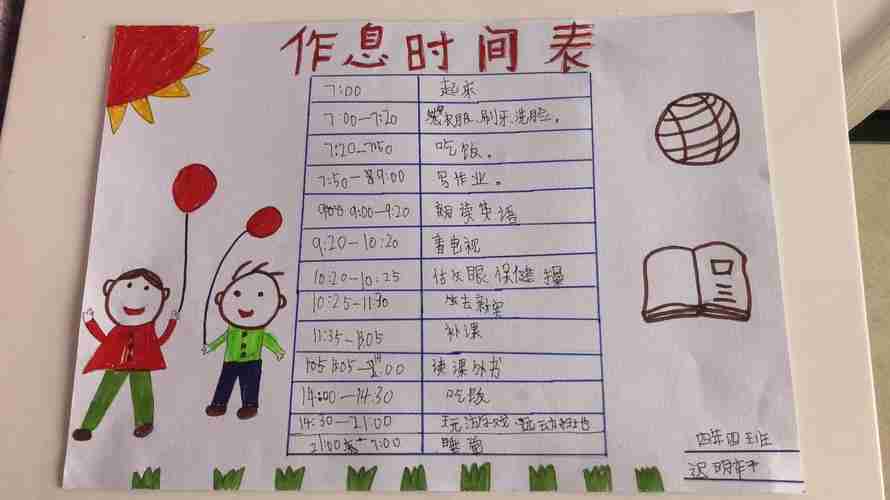 作息时间表
7:00 起床
7:00—7:20 衣服、刷牙、洗脸。
7:20—7:50 吃饭。
7:50—9:00 写作业。
9:00—9:20 朗读英语
9:20—10:20 看电视
10:20—10:25 做次眼保健操
10:25—11:30
11:35—13:05 补课
13:05—14:00 读课外书
14:00—14:30 吃饭
14:30—21:00 玩游戏、运动
21:00 7:00 睡觉
四年四班
迟明